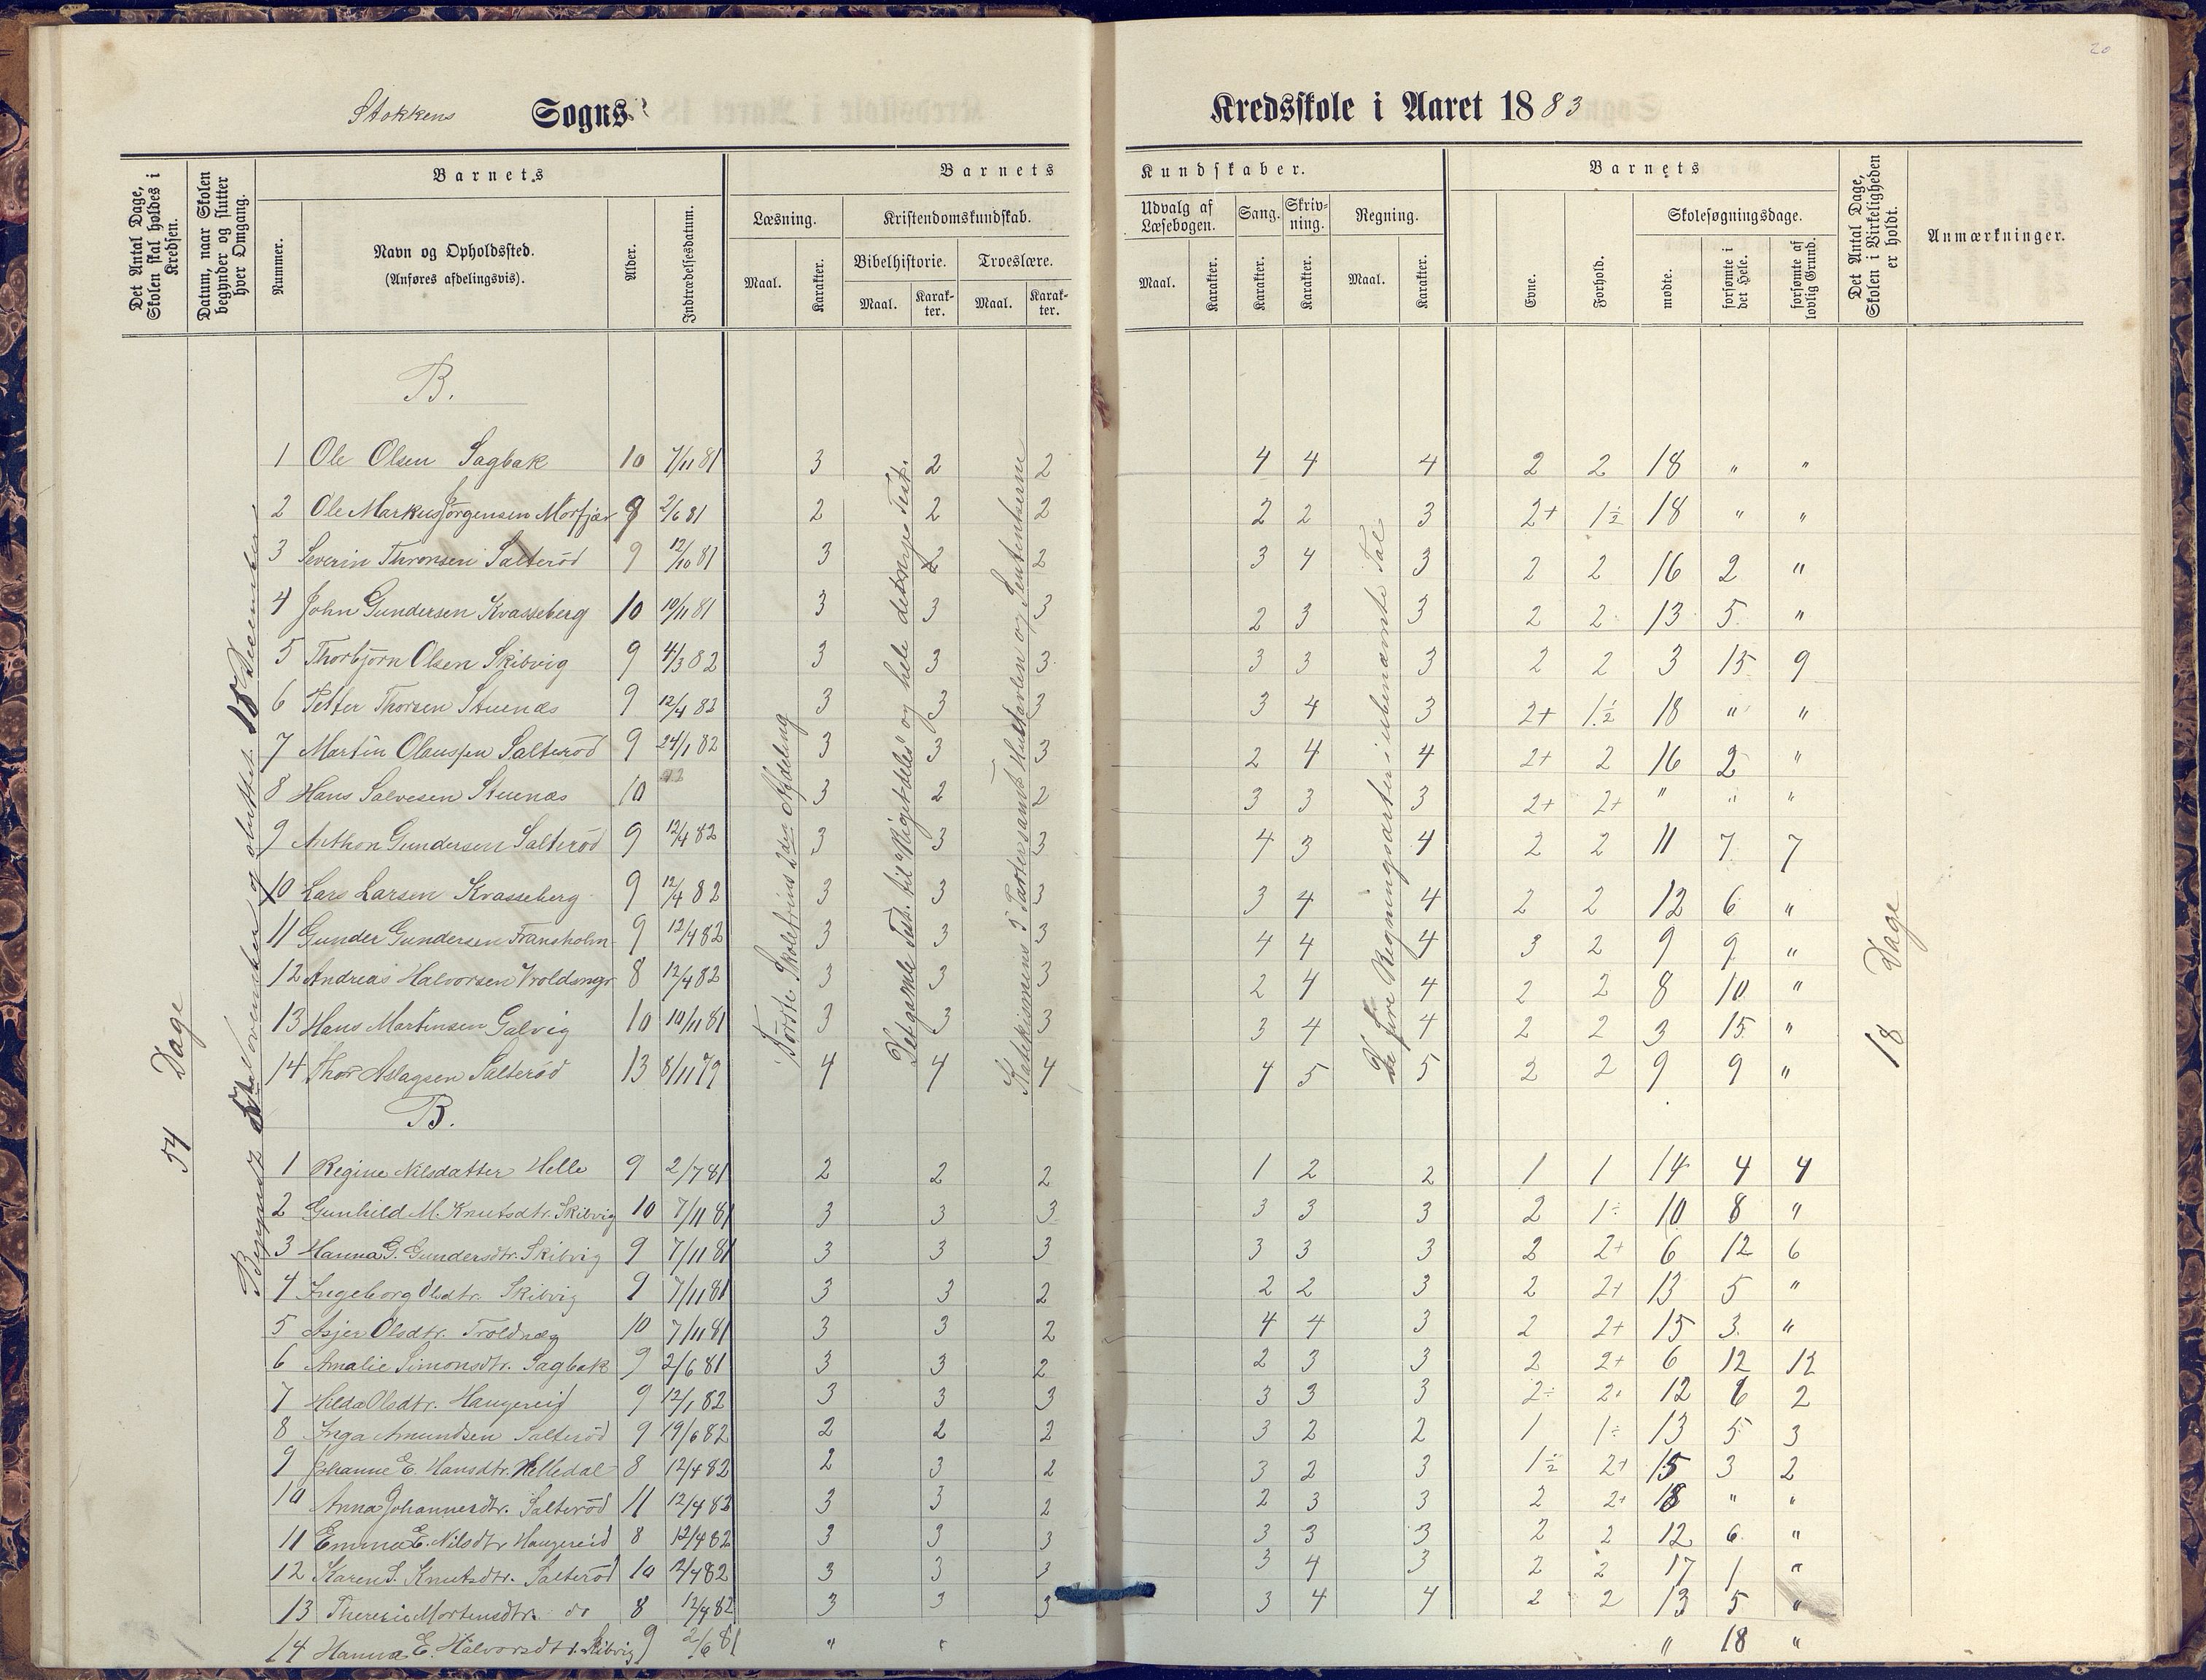 20
Stokkens Sogns
Kredsskole i Aaret 1883
Det Antal Dage, Skolen skal holdes i Kredsen.
Datum, naar Skolen begynder og slutter hver Omgang.
Barnets
Nummer.
Navn og Opholdssted.
(Anføres afdelingsvis).
Alder.
Indtrædelsesdatum.
Barnets
Læsning.
Maal.
Karakter.
Kristendomskundskab.
Bibelhistorie.
Maal.
Karakter.
Troeslære.
Maal.
Karakter.
Kundskaber.
Udvalg af Læsebogen.
Maal.
Karakter.
Sang.
Karakter.
Skrivning.
Karakter.
Regning.
Maal.
Karakter.
Barnets
Evne.
Forhold.
Skolesøgningsdage.
mødte.
forsømte i det Hele.
forsømte af lovlig Grund.
Det Antal Dage, Skolen i Virkeligheden er holdt.
Anmærkninger.
54 Dage
November og sluttet 18 December
Første Skoletrins 2den Afdeling
og hele det nye Test.
Katekismens 5 Parter samt Hustavlen og Sententserne
De fire Regningsarter i ubenævnte Tal
18 Dage
B.
1 Ole Olsen Sagbak 10 7/11 81 3 2 2 4 4 4 2 2 18 " "
2 Ole Markus Jörgensen Morfjær 9 2/6 81 2 2 2 2 2 3 2+ 1½ 18 " "
3 Severin Thronsen Salteröd 9 12/10 81 3 2 2 3 4 3 2 2 16 2 "
4 John Gundersen Kvasseberg 10 10/11 81 3 3 3 2 3 3 2 2 13 5 "
5 Thorbjörn Olsen Skibvig 9 4/3 82 3 3 3 3 3 3 2 2 3 15 9
6 Petter Thorsen Stuenæs 9 12/4 82 3 3 3 3 4 3 2+ 1½ 18 " "
7 Martin Olaussen Salteröd 9 24/1 82 3 3 3 2 4 4 2+ 2 16 2 "
8 Hans Salvesen Stuenæs 10 3 2 2 3 3 3 2+ 2+ " " "
9 Anthon Gundersen Salteröd 9 12/4 82 3 3 3 4 3 4 2 2 11 7 7
10 Lars Larsen Kvasseberg 9 12/4 82 3 3 3 3 4 4 2 2 12 6 "
11 Gunder Gundersen Fransholm 9 12/4 82 3 3 3 4 4 4 3 2 9 9 "
12 Andreas Halvorsen 8 12/4 82 3 3 3 2 4 4 2 2 8 10 "
13 Hans Martinsen Galvig 10 10/11 81 3 3 3 3 4 4 2 2 3 15 "
14 Thor Aslagsen Salteröd 13 8/11 79 4 4 4 4 5 5 2 2 9 9 "
B.
1 Regine Nilsdatter Helle 9 2/7 81 2 2 2 1 2 2 1 1 14 4 4
2 Gunhild M. Knutsdtr. Skibvig 10 7/11 81 3 3 3 3 3 3 2 1÷ 10 8 "
3 Hanna G. Gundersdtr. Skibvig 9 7/11 81 3 3 3 3 3 3 2 2+ 6 12 6
4 Ingeborg Olsdtr. Skibvig 9 7/11 81 3 3 2 2 2 3 2 2+ 13 5 "
5 Asjer Olsdtr. Troldnæs 10 7/11 81 3 3 2 4 4 3 2 2+ 15 3 "
6 Amalie Simonsdtr. Sagbak 9 2/6 81 3 3 2 2 3 3 2 2+ 6 12 12
7 Hilda Olsdtr. Haugereid 9 12/1 82 3 3 3 3 3 3 2÷ 2+ 12 6 2
8 Inga Amundsen Salteröd 9 19/6 82 2 2 2 3 2 2 1 1÷ 13 5 3
9 Johanne E. Hansdtr. Helledal 8 12/4 82 2 3 2 3 2 3 1½ 2+ 15 3 2
10 Anna Johannesdtr. Salteröd 11 12/4 82 3 3 2 2 3 3 2 2+ 18 " "
11 Emma E. Nilsdtr Haugereid 8 12/4 82 3 3 3 3 3 3 2 2 12 6 "
12 Karen S. Knutsdtr. Salteröd 10 12/4 82 3 3 3 3 4 3 2 2 17 1 "
13 Theresie Mortensdtr. do 8 12/4 82 3 3 3 3 4 4 2 2 13 5 "
14 Hanna E. Halvorsdtr. Skibvig 9 2/6 81 " " " 18 "